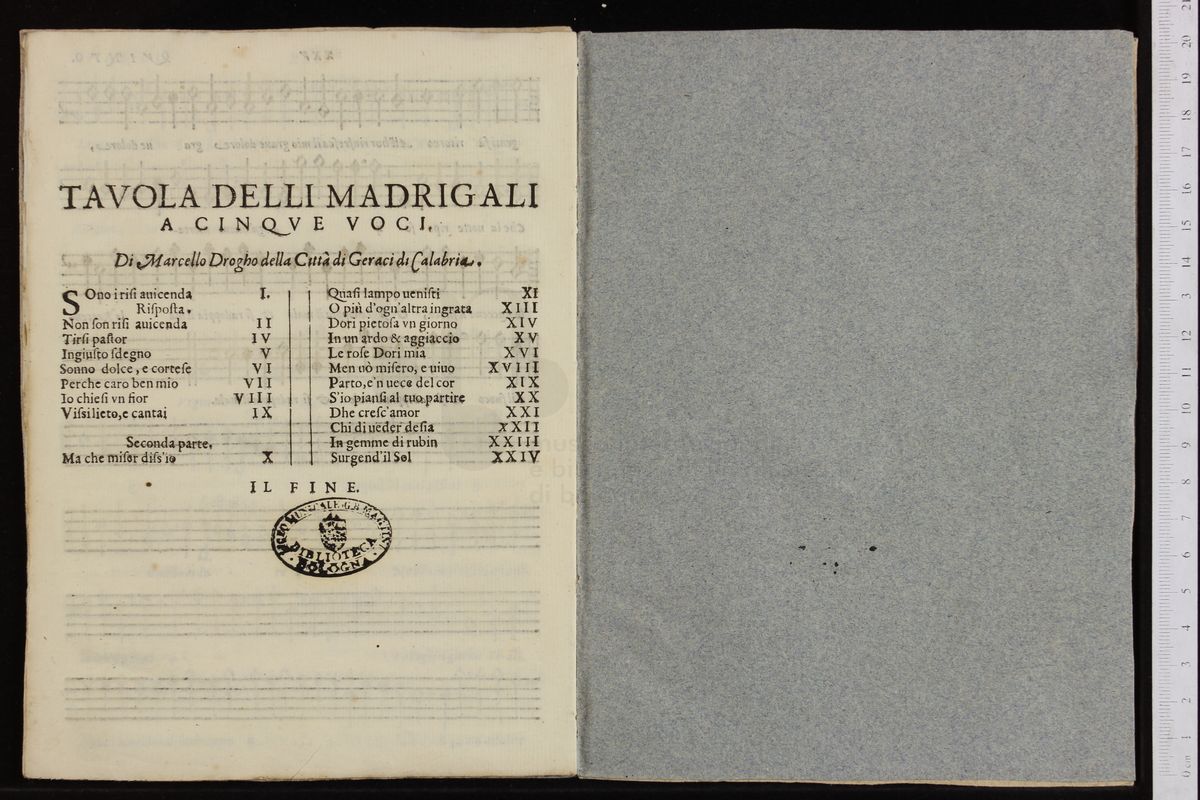 TAVOLA DELLI MADRIGALI
A CINQVE VOCI.
Di Marcello Drogho della Città di Geraci di Calabria.
SOno i risi auicenda I.
Risposta.
Non son risi auicenda II
Tirsi pastor IV
Ingiusto sdegno V
Sonno dolce, e cortese VI
Perche caro ben mio VII
Io chiesi vn fior VIII
Vissi lieto, e cantai IX
Seconda parte.
Ma che miser diss'io X
Quasi lampo uenisti XI
O più d'ogn'altra ingrata XIII
Dori pietosa vn giorno XIV
In un ardo & aggiaccio XV
Le rose Dori mia XVI
Men uò misero, e uiuo XVIII
Parto, e'n uece del cor XIX
S'io piansi al tuo partire XX
Dhe cresc'amor XXI
Chi di ueder desia XXII
In gemme di rubin XXIII
Surgend'il Sol XXIV
IL FINE.
LICEO MUSICALE G.B. MARTINI
BIBLIOTECA
BOLOGNA